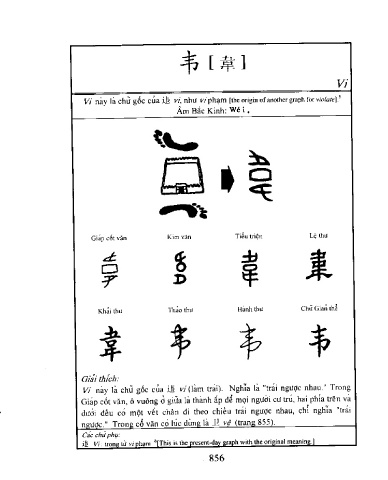 韦 [ 韋 ]
Vi
Vi này là chữ gốc của 違 vi, như vi phạm [the origin of another graph for violate].
Âm Bắc Kinh: Wé i .
Giáp cốt văn Kim văn Tiểu triện Lệ thư
Khải thư Thảo thư Hành thư Chữ Giản thể
韋 韦
Giải thích:
Vi này là chữ gốc của 違 vi (làm trái). Nghĩa là "trái ngược nhau." Trong
Giáp cốt văn, ô vuông ở giữa là thành ấp để mọi người cư trú, hai phía trên và
dưới đều có một vết chân đi theo chiều trái ngược nhau, chỉ nghĩa "trái
ngược." Trong cổ văn có lúc dùng là vệ (trang 855).
Các chú phụ:
違 Vi: trong từ vi phạm [This is the present-day graph with the original meaning.]
856